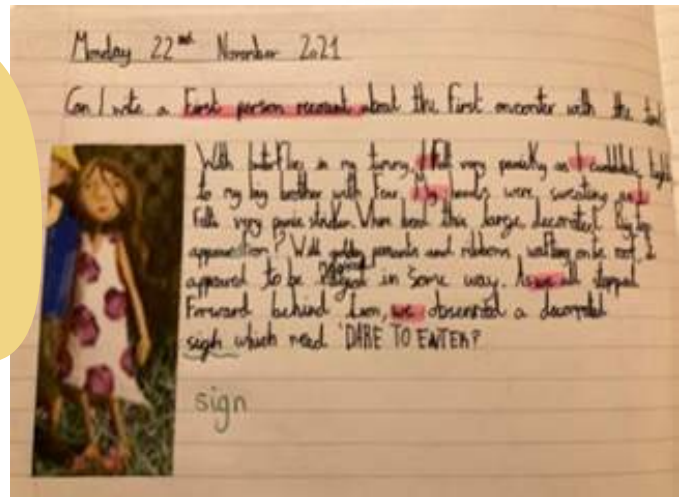 Monday 22nd November 2021
Can I write a first person recount about the first enconter with the
With butterflies in my tummy, I felt very panicky as I cuddled
to my big brother with fear. My hands were sweating as I
felt very panic striken. When had this large decorated Big top
? With golden and ribbons, on its roof, it
appeared to be in some way. As we all stepped
forward behind , we obsereved a decorated
sigh which read 'DARE TO ENTER?
sign